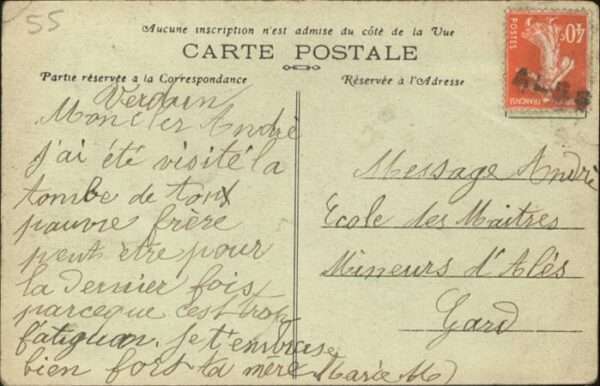 55
Aucune inscription n'est admise du côté de la Vue
CARTE POSTALE
Partie réservée à la Correspondance
Réservée à l'Adresse
40c
POSTES
ALES
Verdun
Mon cher André
j'ai été visité la
tombe de ton
pauvre frère
peut être pour
la dernier fois
parceque c'est trop
fatiguan. je t'embrase
bien fort ta mère Marie M
Message André
Ecole des Maitres
Mineurs d'Alés
Gard